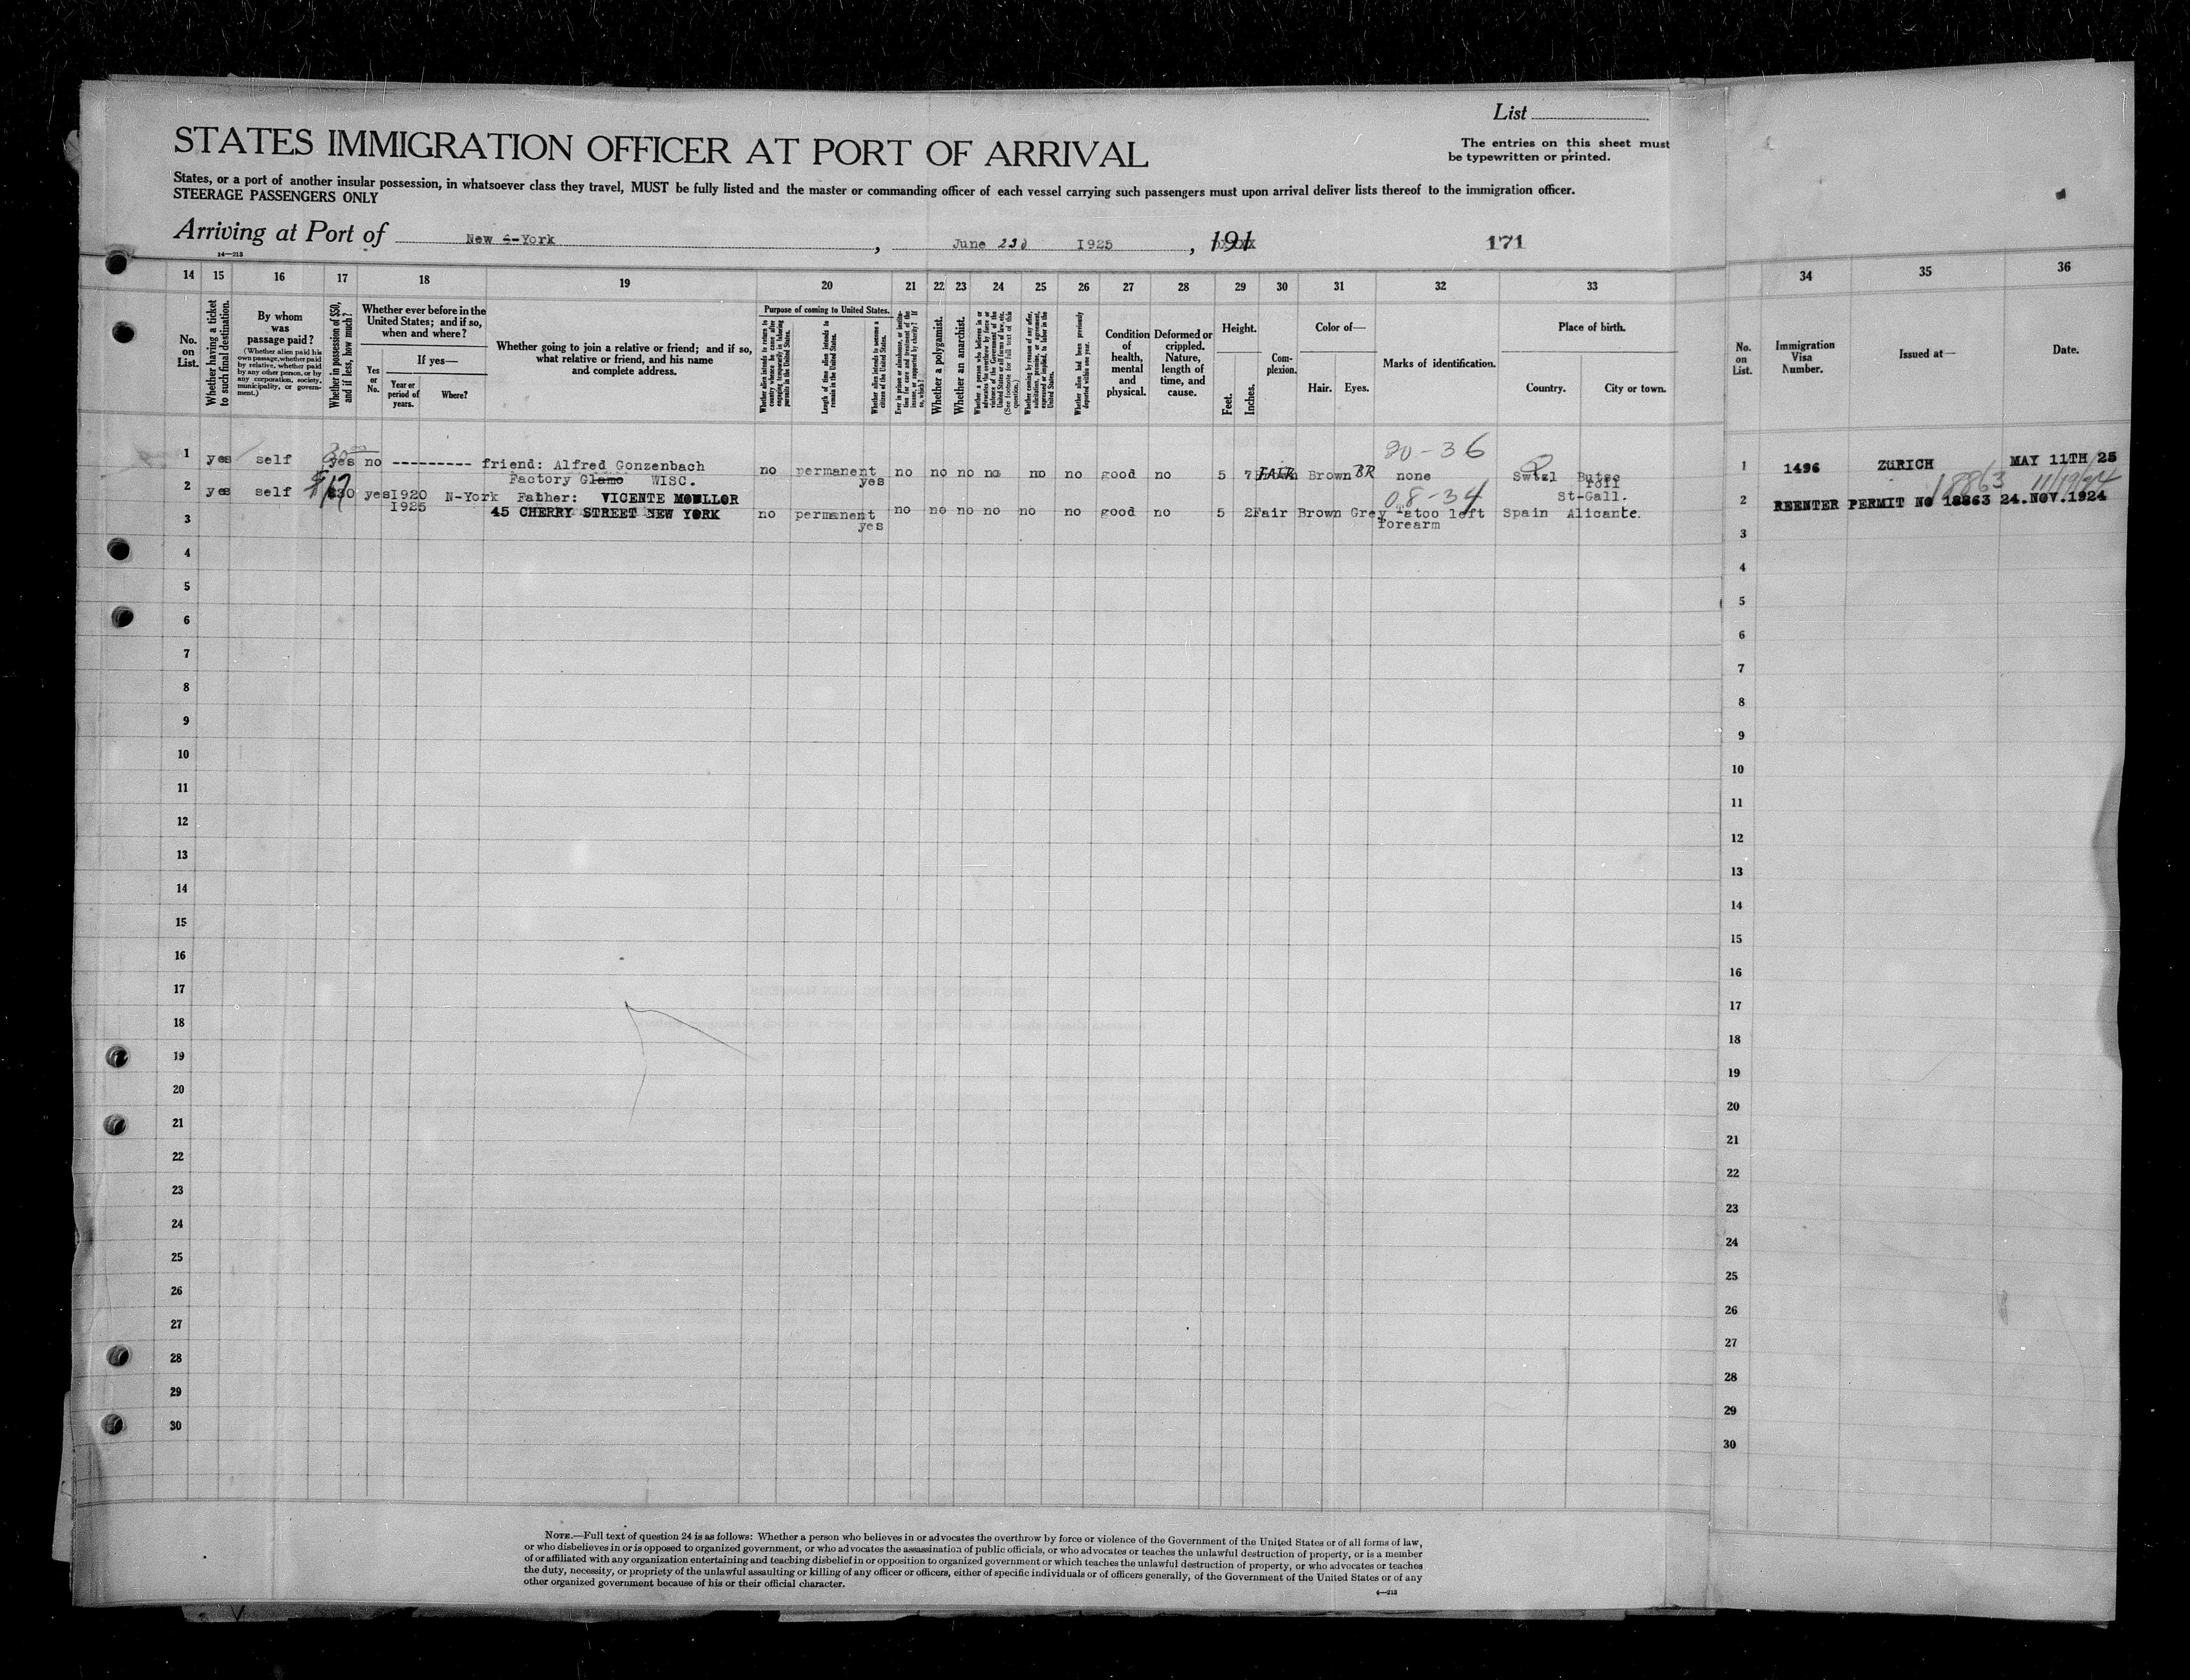 List
STATES IMMIGRATION OFFICER AT PORT OF ARRIVAL
The entries on this sheet must
be typewritten or printed.
States, or a port of another insular possession, in whatsoever class they travel, MUST be fully listed and the master or commanding officer of each vessel carrying such passengers must upon arrival deliver lists thereof to the immigration officer.
STEERAGE PASSENGERS ONLY
Arriving at Port of New -York, June 23d 1925, 191
171
14—213
14 15 16 17 18 19 20 21 22 23 24 25 26 27 28 29 30 31 32 33 34 35 36
No. on List.
Whether having a ticket to such final destination.
By whom was passage paid?
(Whether alien paid his own passage, whether paid by relative, whether paid by any other person, or by any corporation, society, municipality, or government.)
Whether in possession of $50, and if less, how much?
Whether ever before in the United States; and if so, when and where?
Yes or No.
If yes—
Year or period of years.
Where?
Whether going to join a relative or friend; and if so, what relative or friend, and his name and complete address.
Purpose of coming to United States.
Whether alien intends to return to country whence he came after engaging temporarily in laboring pursuits in the United States.
Length of time alien intends to remain in the United States.
Whether alien intends to become a citizen of the United States.
Ever in prison or almshouse, or institution for care and treatment of the insane, or supported by charity? If so, which?
Whether a polygamist.
Whether an anarchist.
Whether a person who believes in or advocates the overthrow by force or violence of the Government of the United States or all forms of law, etc. (See footnote for full text of this question.)
Whether coming by reason of any offer, solicitation, promise, or agreement, expressed or implied, to labor in the United States.
Whether alien had been previously deported within one year.
Condition of health, mental and physical.
Deformed or crippled. Nature, length of time, and cause.
Height.
Feet.
Inches.
Complexion.
Color of—
Hair.
Eyes.
Marks of identification.
Place of birth.
Country.
City or town.
No. on List.
Immigration Visa Number.
Issued at—
Date.
80-36
1 yes self yes no --------- friend: Alfred Gonzenbach no permanent no no no no no no good no 5 7 FAIR Brown BR none Swtzl 1 1496 ZURICH MAY 11TH 25
Factory Glamo WISC. yes
18863 11/19/24
08-34 St-Gall.
2 yes self $17 yes 1920 N-York Father: VICENTE MOULLOR 2 REENTER PERMIT NO 18863 24.NOV.1924
1925 45 CHERRY STREET NEW YORK no permanent no no no no no no good no 5 2 Fair Brown Grey Tatoo left Spain Alicante.
yes forearm
3 3
4 4
5 5
6 6
7 7
8 8
9 9
10 10
11 11
12 12
13 13
14 14
15 15
16 16
17 17
18 18
19 19
20 20
21 21
22 22
23 23
24 24
25 25
26 26
27 27
28 28
29 29
30 30
NOTE.—Full text of question 24 is as follows: Whether a person who believes in or advocates the overthrow by force or violence of the Government of the United States or of all forms of law,
or who disbelieves in or is opposed to organized government, or who advocates the assassination of public officials, or who advocates or teaches the unlawful destruction of property, or is a member
of or affiliated with any organization entertaining and teaching disbelief in or opposition to organized government or which teaches the unlawful destruction of property, or who advocates or teaches
the duty, necessity, or propriety of the unlawful assaulting or killing of any officer or officers, either of specific individuals or of officers generally, of the Government of the United States or of any
other organized government because of his or their official character.
4—213